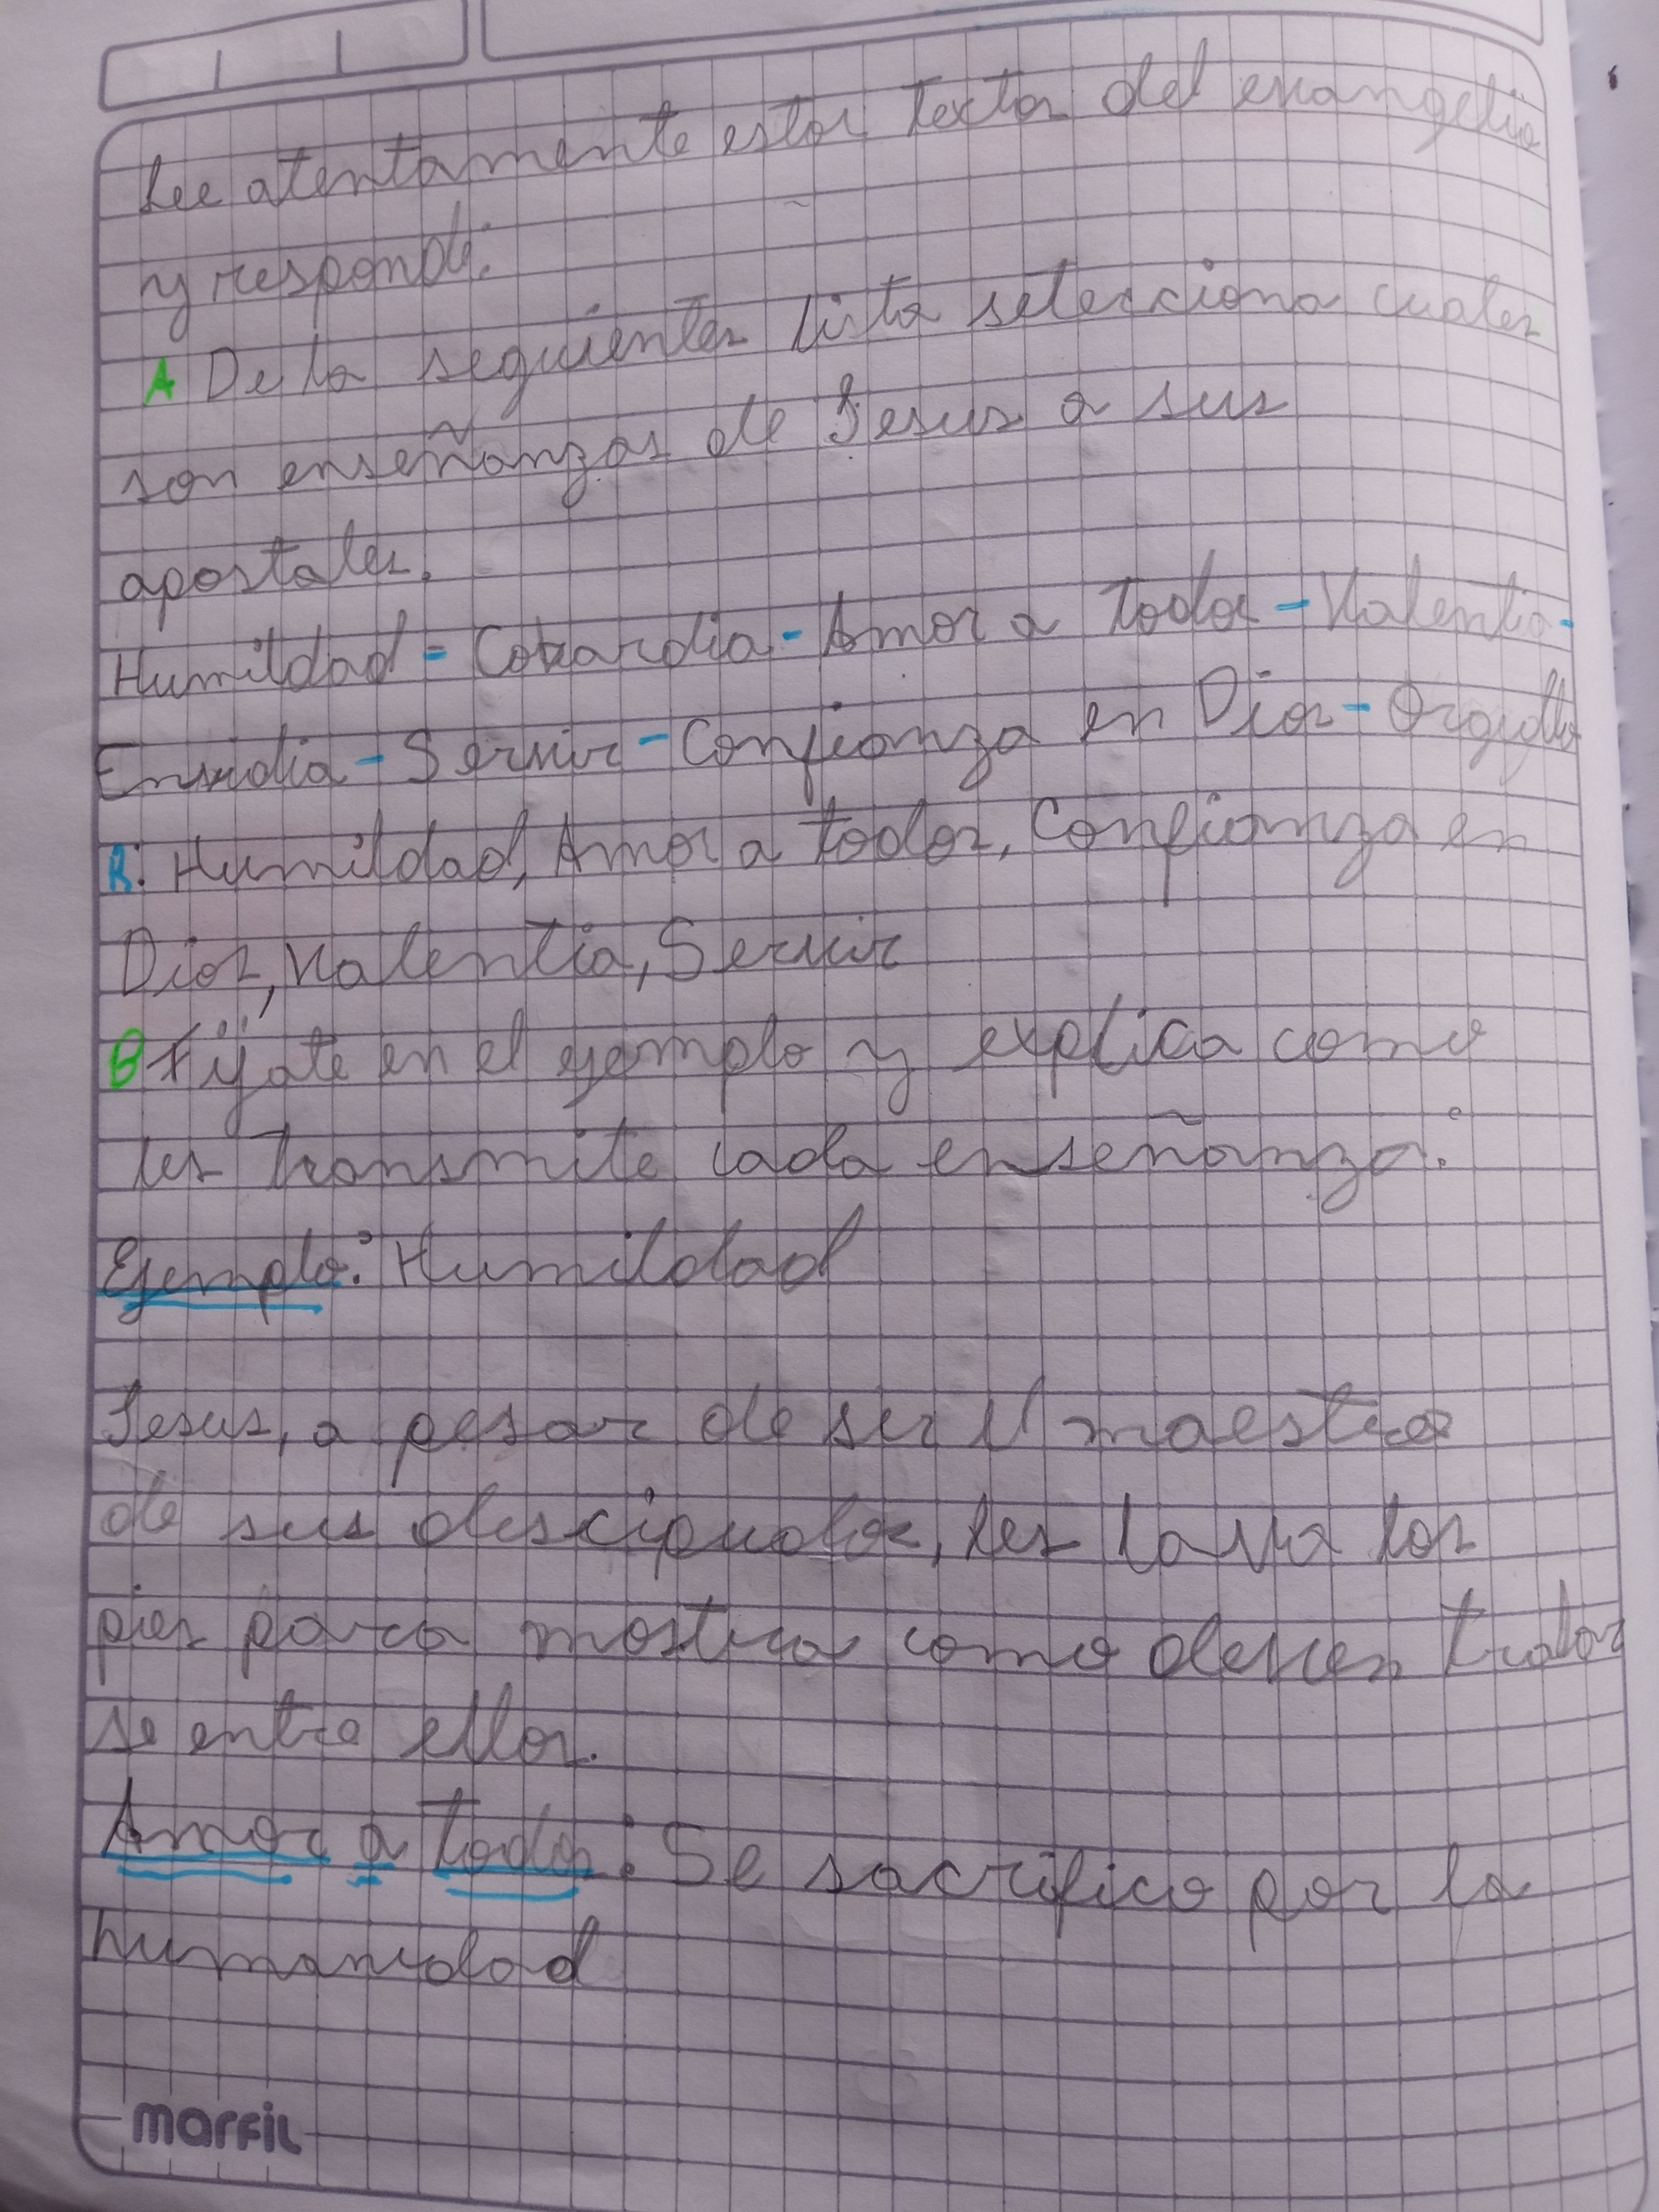 Lee atentamente estos textos del evangelio
y responde:
A De la seguientes lista selecciona cuales
son enseñanzas de Jesus a sus
apostoles.
Humildad - Cobardia - Amor a todos - Valentia -
Envidia - Servir - Confianza en Dios - Orgullo
R: Humildad, Amor a todos, Confianza en
Dios, Valentia, Servir
B Fijate en el ejemplo y explica como
les transmite cada enseñanza:
Ejemplo: Humildad
Jesus, a pesar de ser el maestro
de sus descipulos, les lava los
pies para mostra como deven tratar
se entre ellos.
Amor a todos: Se sacrifico por la
humanidad
marfil